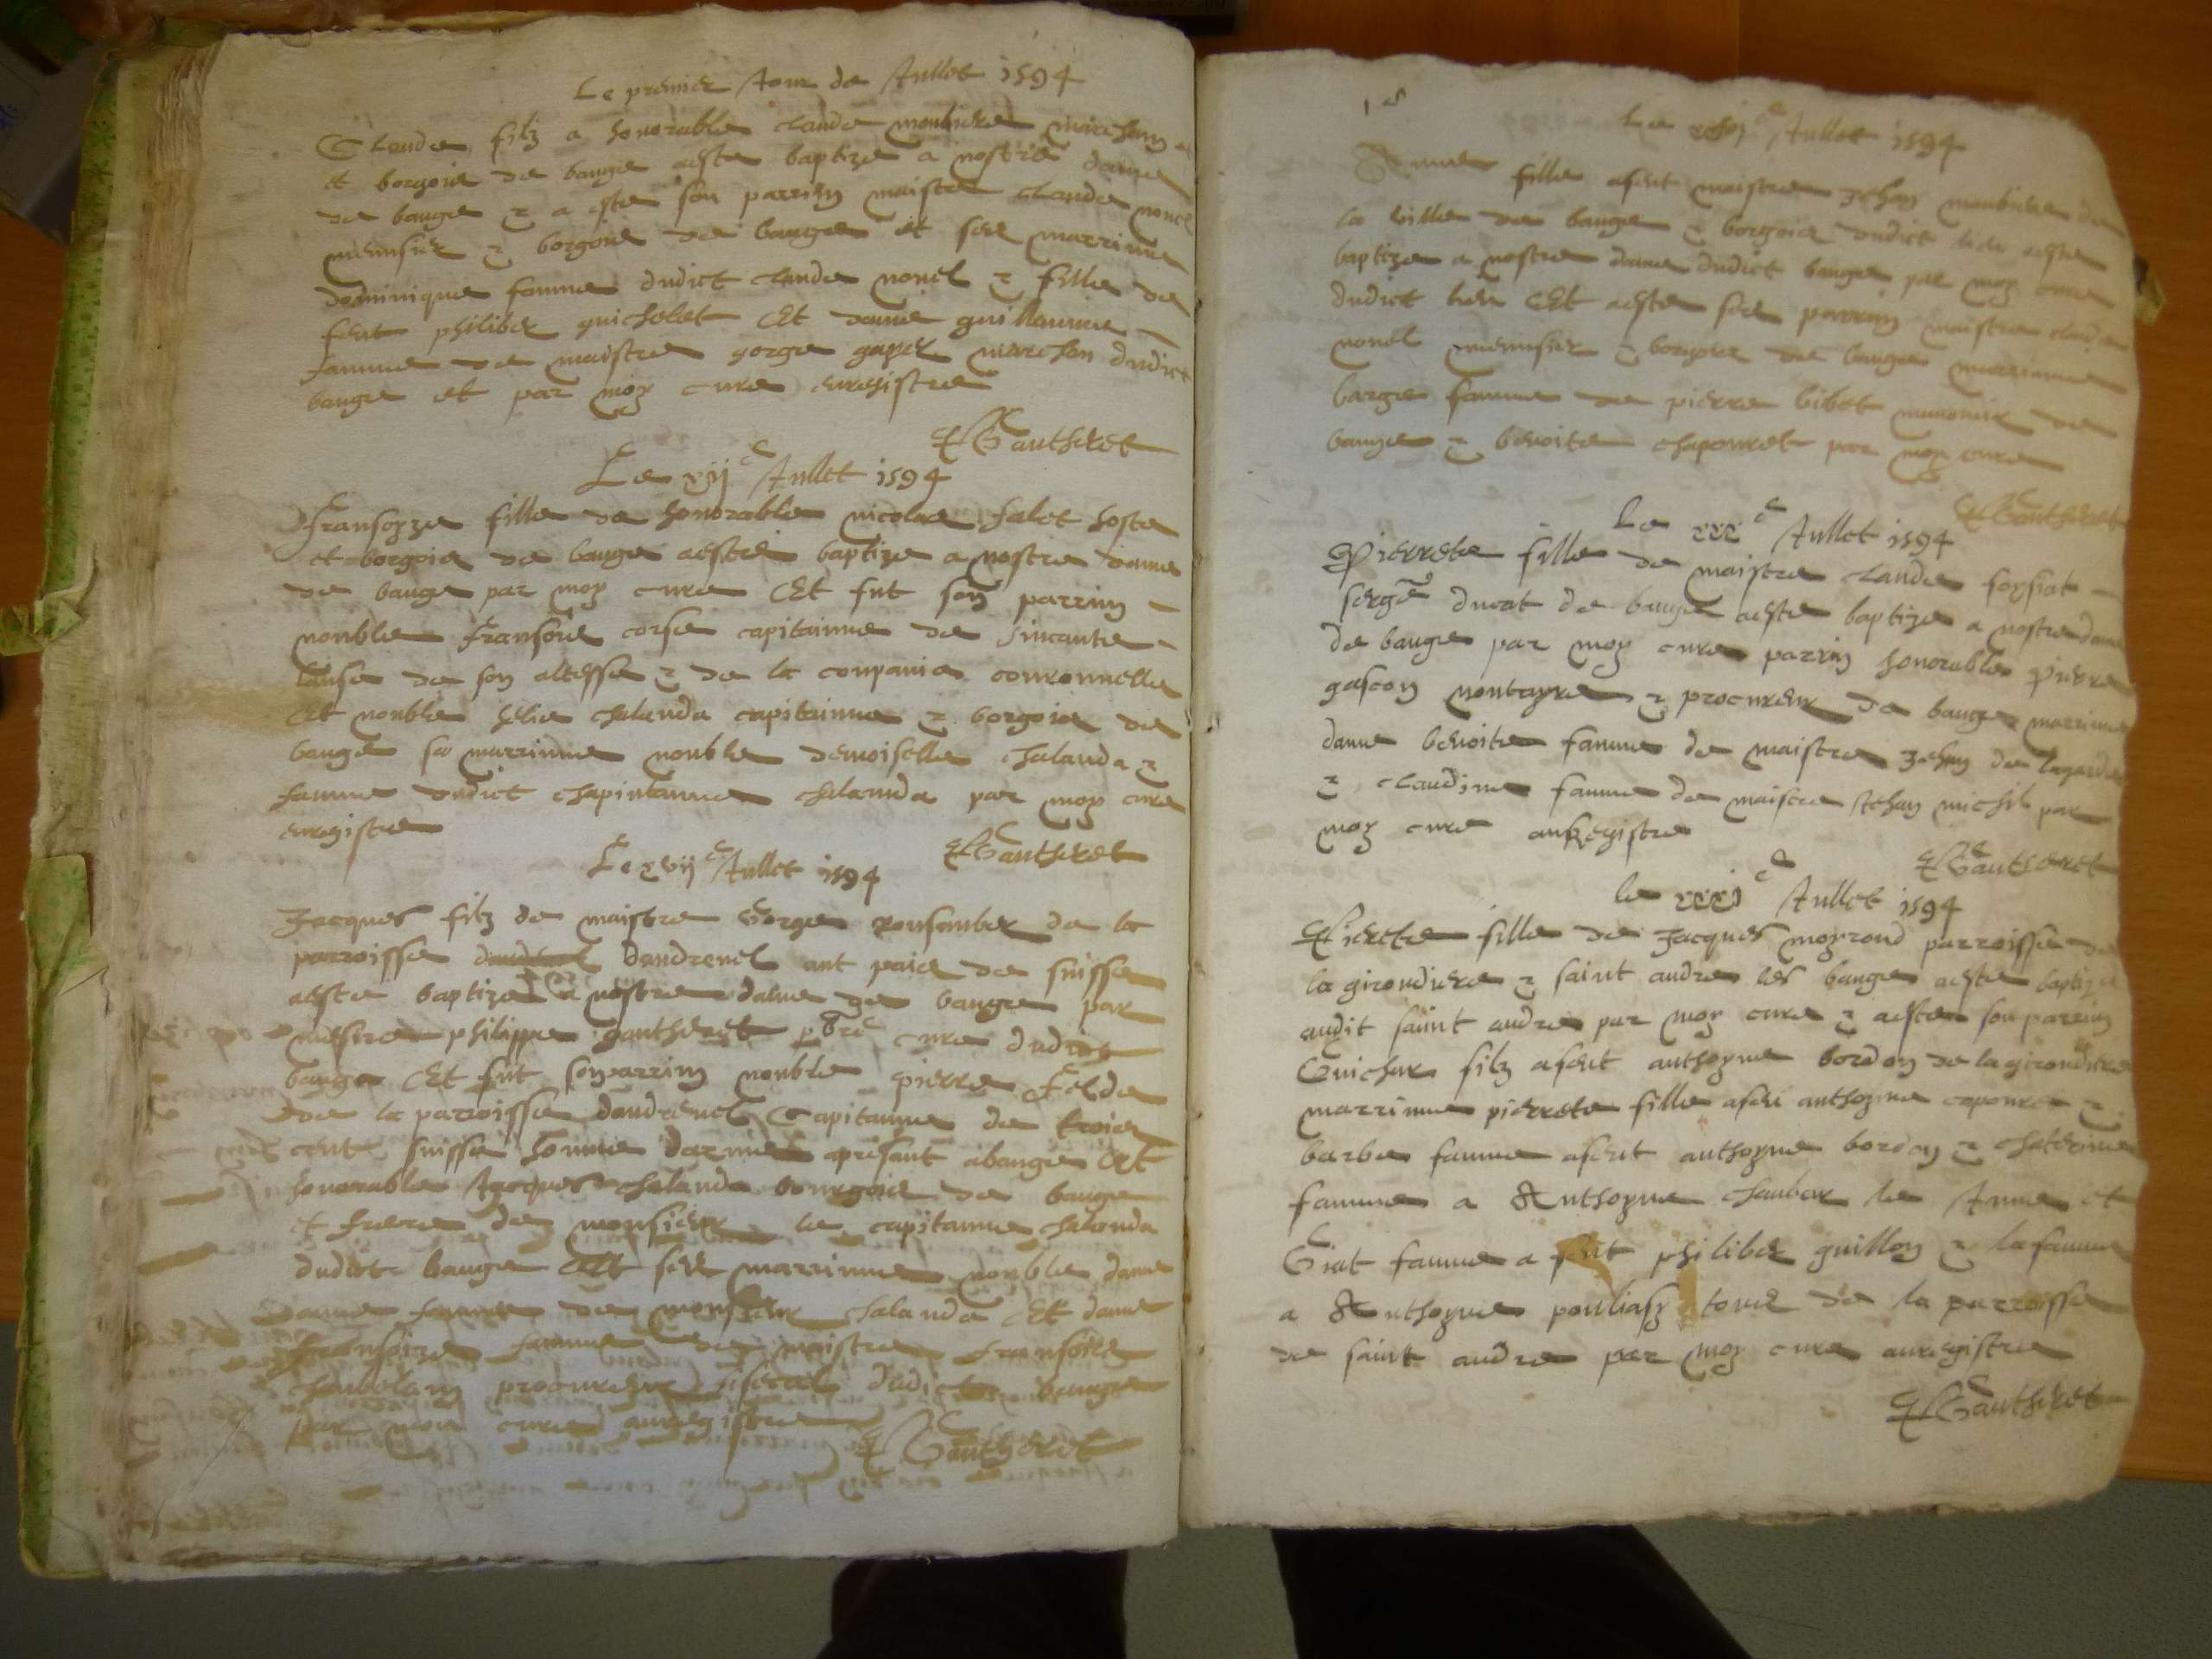 Le premier Jour de Jullet 1594
Claude filz a honorable claude monbiere marchan
et borgoie de bauge aeste baptize a nostre dame
de bauge & a este son parrin maistre claude nonel
menusier & borgoie de bauge et ses marrinne
dominique famme dudict claude nonel & fille de
feut philiber guichelet Et dame guillaume
famme de maistre gorge gaper marchan dudict
bauge et par moy cure enregistre
Gautheret
Le xij e Jullet 1594
Fransoyze fille de honorable nicolas falet hoste
et borgoie de bauge aeste baptize a nostre dame
de bauge par moy cure Et fut son parrin
nouble fransoie corse capitainne de sincante
lanse de son altesse & de la conpanie couronnelle
Et nouble helie chalanda capitainne & borgoie de
bauge sa marrinne nouble demoiselle chalanda &
famme dudict chapintanne chalanda par moy cure
enregistre
Gautheret
Le xvij e Jullet 1594
Jacques filz de maistre Gorge ronsinber de la
parroisse dandrenel ant paie de suisse
aeste baptize a nostre dame de bauge par
mesire philippe gautheret pbre cure dudict
bauge Et fut son parrin nouble pierre felde
de la parroisse dandrenel Capitanne de troie
cent suisse homme darme apresant abauge Et
honorable Jacques chalanda bourgoie de bauge
et frere de monsieur le capitanne chalonda
dudict bauge Et ses marrinne nouble dame
Janne famme de monsieur chalanda Et dame
fransoize famme de maistre fransoie
chanbelain procureur fiscal dudict bauge
par moy cure auregistre
Gautheret
Le xxhij e Jullet 1594
Anne fille afeut maistre Jehan monbiere de
la ville de bauge & borgoie dudict lieu aeste
baptize a nostre dame dudict bauge par moy cure
dudict lieu Et aeste ses parrin maistre claude
nonel menusier & borgoie de bauge marrinne
barge famme de pierre bibet munonier de
bauge & benoite chapouret par moy cure
Gautheret
Le xxx e Jullet 1594
Pierrete fille de maistre claude soysiat
serge ducat de bauge aeste baptize a nostre dame
de bauge par moy cure parrin honorable pierre
gascon nontayre & procureur de bauge marrinne
dame benoite famme de maistre Jehan de lagarde
& claudine famme de maistre Jehan michil par
moy cure anregistre
Gautheret
le xxxj e Jullet 1594
Pierete fille de Jacques moyrond parroisse de
la girondiere & saint andre les bauge aeste baptize
audit saint andre par moy cure & aeste son parrin
Guichar filz afeut anthoyne bordon de la girondiere
marrinne pierrete fille afeu anthoyne caponre &
barbe famme afeut anthoyne bordon & chaterine
famme a Anthoyne chanbar le Junne et
Giat famme a feut philiber guillon & la famme
a Anthoyne pouliasy toure de la parroisse
de saint andre par moy cure auregistre
Gautheret